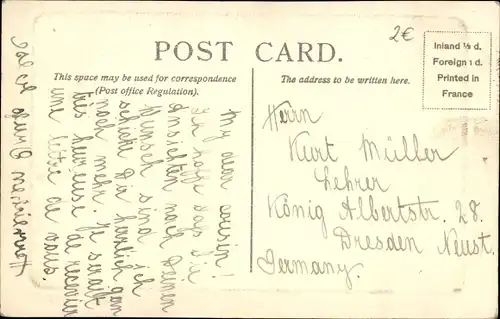 2€
POST CARD.
Inland ½ d.
Foreign 1 d.
Printed in
France
This space may be used for correspondence
(Post office Regulation).
The address to be written here.
My dear cousin!
Ich hoffe dass die
Ansichten nach Deinem
Wunsch sind, ich
schicke Dir herzlich gern
noch mehr. Je serais
très heureuse de recevoir
une lettre de vous.
Herrn
Kurt Müller
Lehrer
König Albertstr. 28.
Dresden Neust.
Germany.